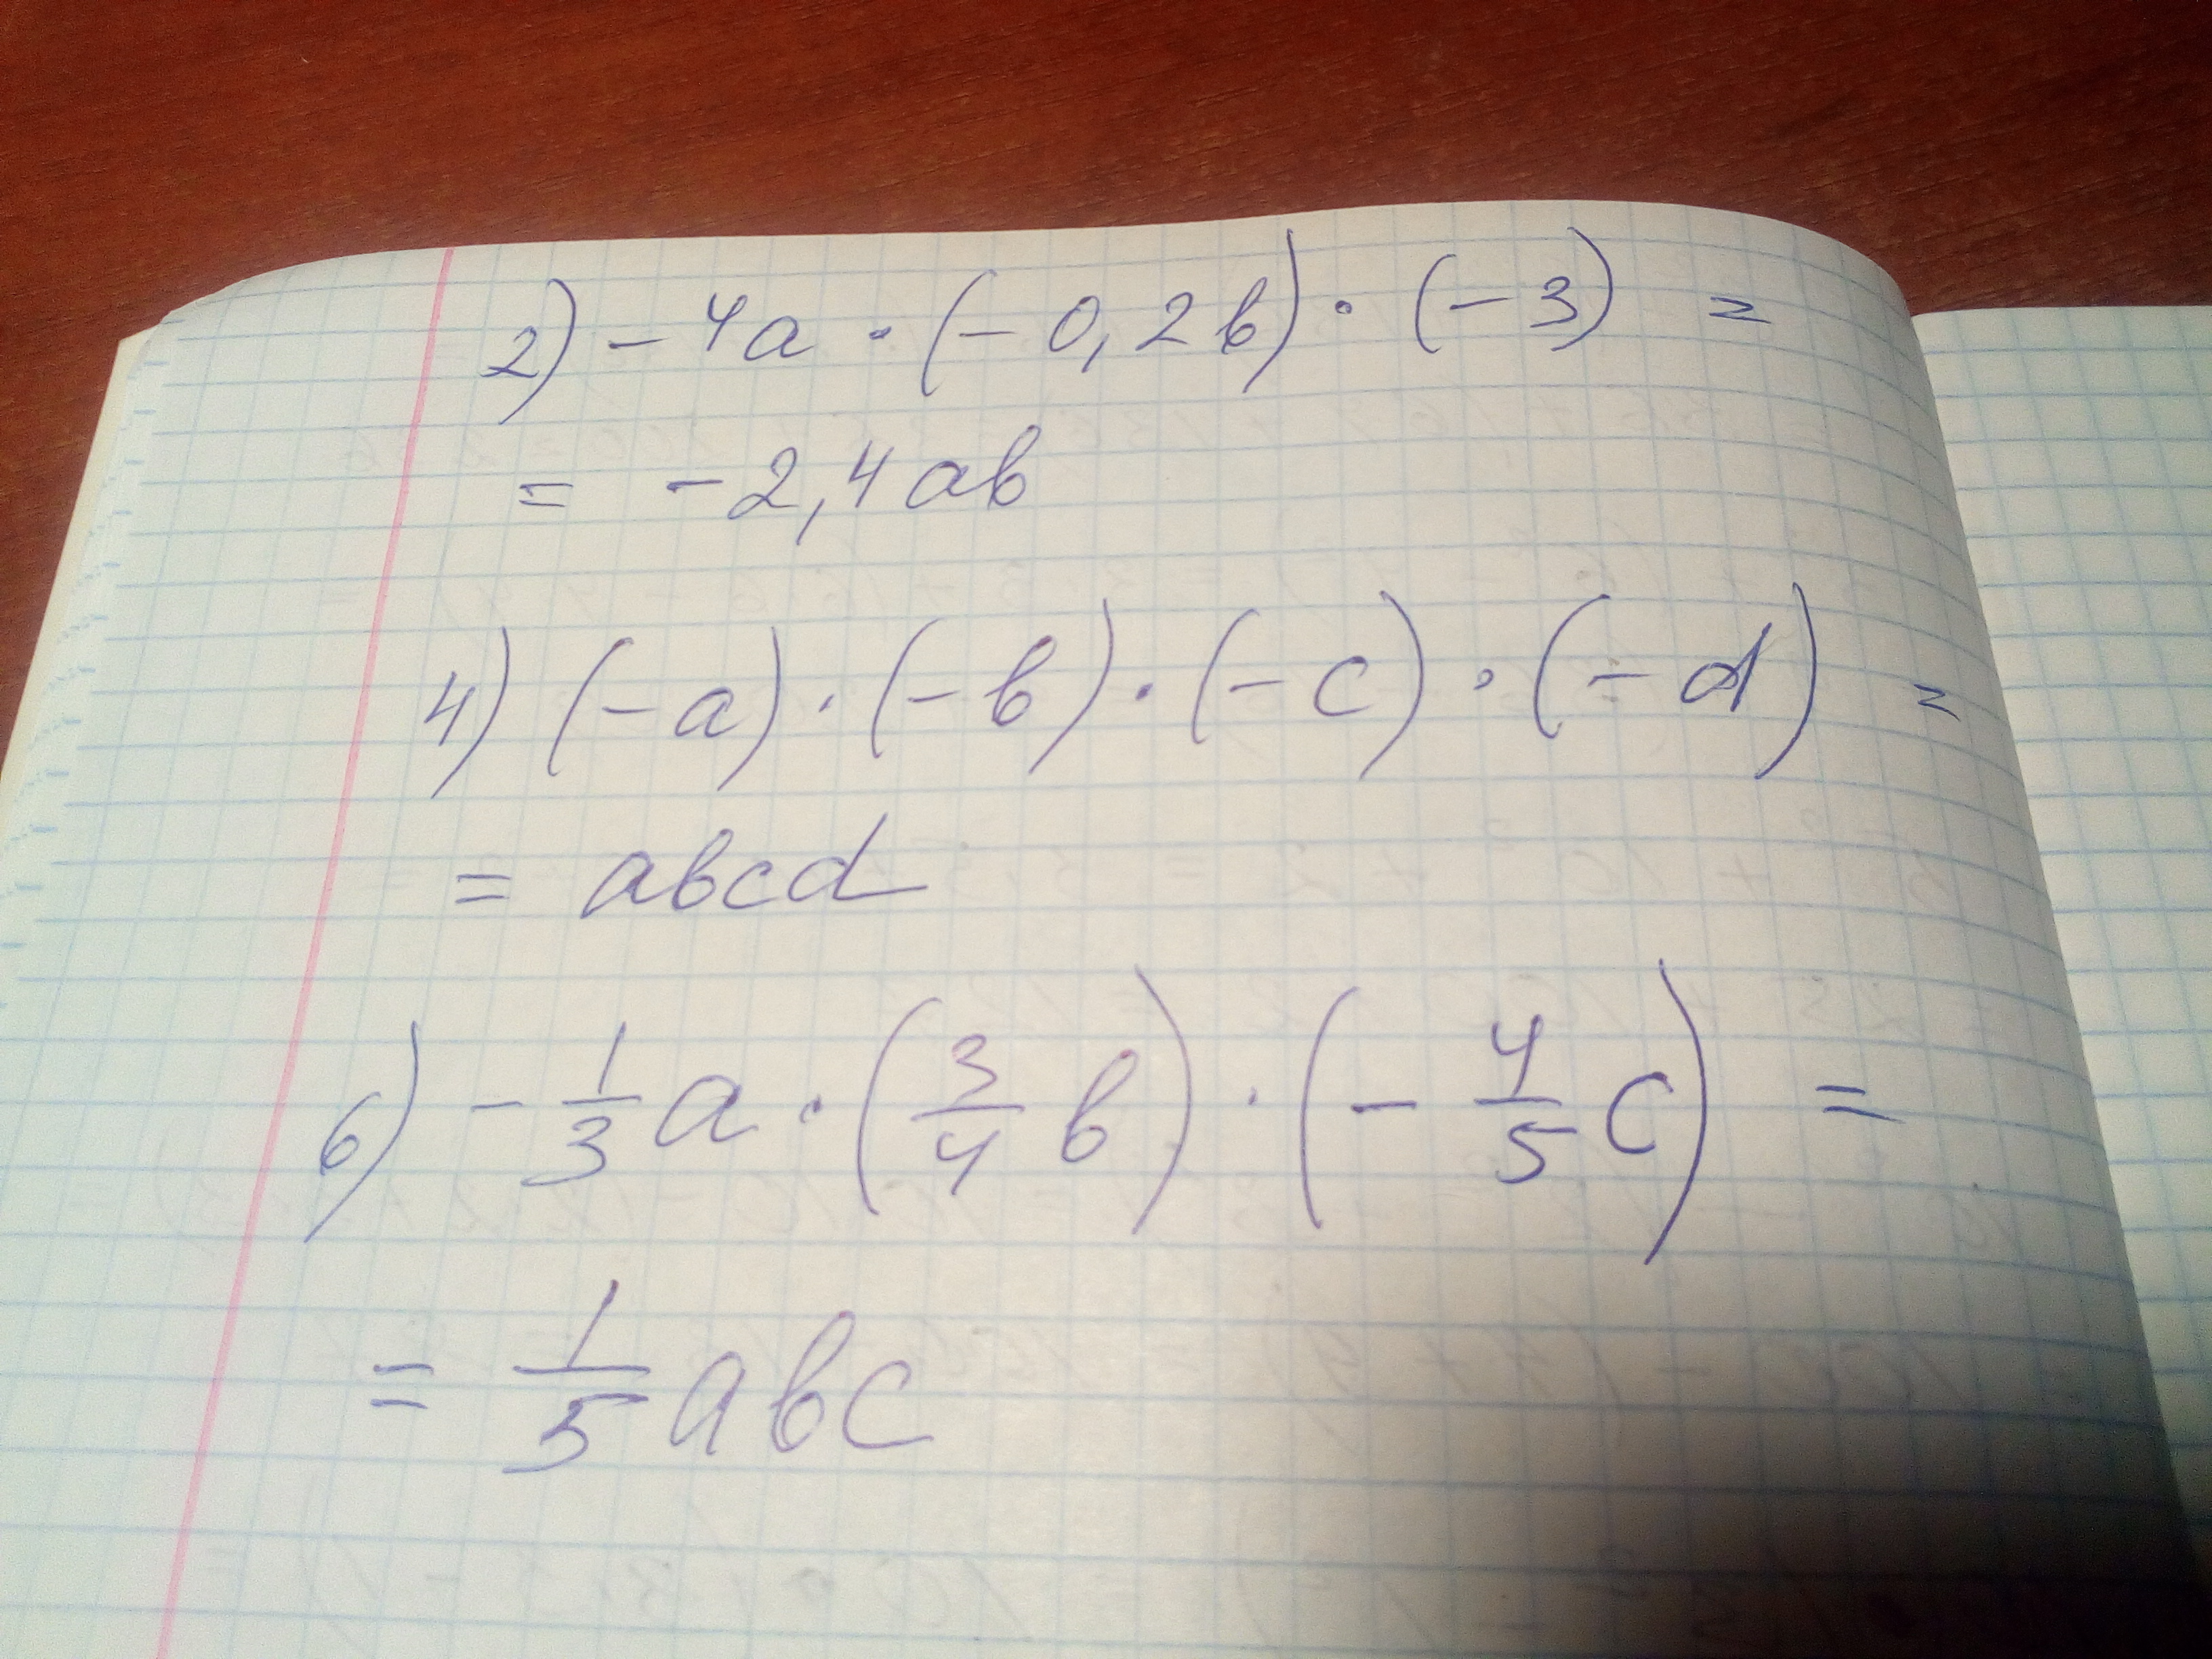 2) - 4a · (- 0,2b) · (- 3) =
= - 2,4ab
4) (- a) · (- b) · (- c) · (- d) =
= abcd
6) - 1/3 a · (3/4 b) · (- 4/5 c) =
= 1/5 abc